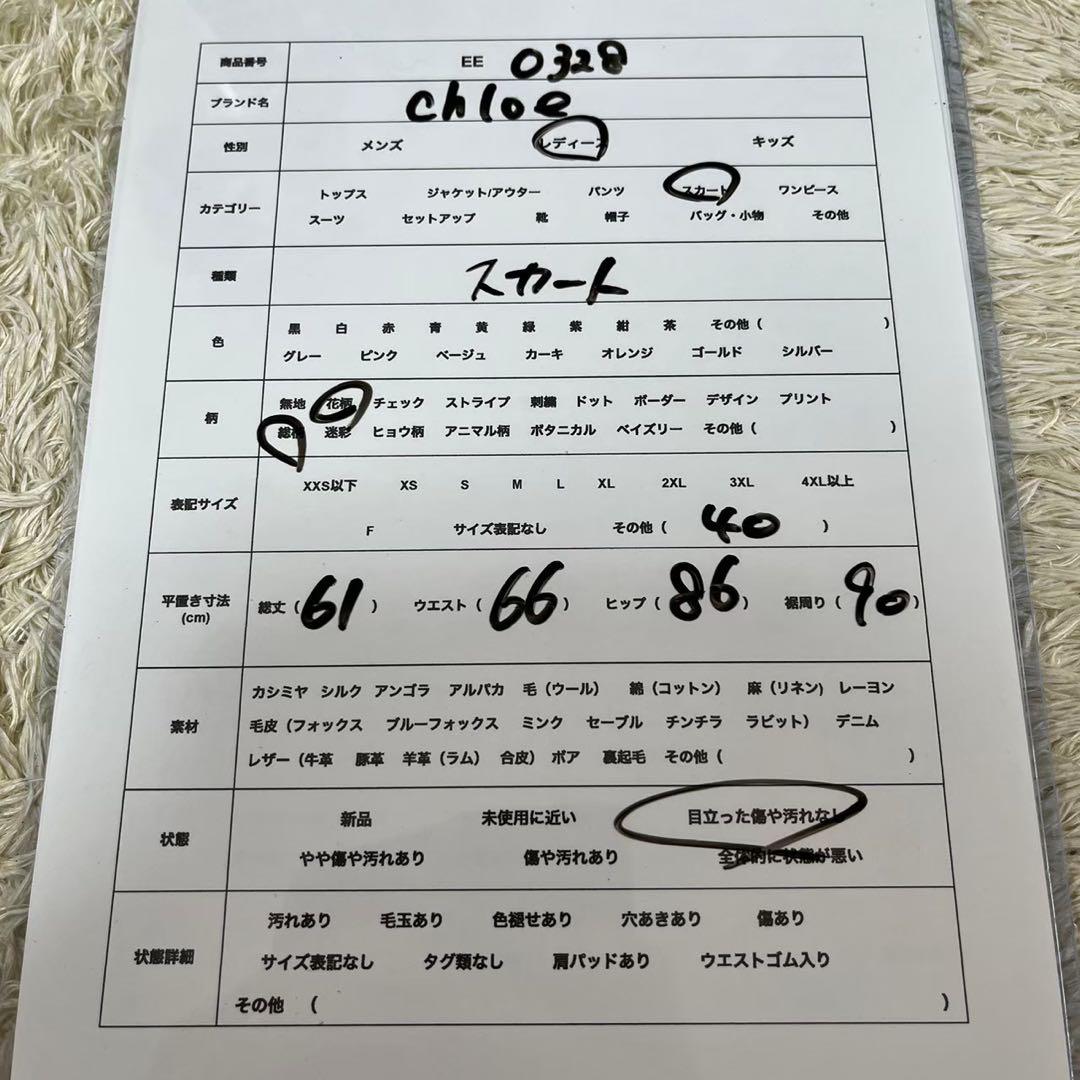 商品番号 EE 0328
ブランド名 chloe
性別 メンズ レディース キッズ
カテゴリー トップス ジャケット/アウター パンツ スカート ワンピース
スーツ セットアップ 靴 帽子 バッグ・小物 その他
種類 スカート
色 黒 白 赤 青 黄 緑 紫 紺 茶 その他（ ）
グレー ピンク ベージュ カーキ オレンジ ゴールド シルバー
柄 無地 花柄 チェック ストライプ 刺繍 ドット ボーダー デザイン プリント
総柄 迷彩 ヒョウ柄 アニマル柄 ボタニカル ペイズリー その他（ ）
表記サイズ XXS以下 XS S M L XL 2XL 3XL 4XL以上
F サイズ表記なし その他（ 40 ）
平置き寸法 (cm) 総丈（ 61 ） ウエスト（ 66 ） ヒップ（ 86 ） 裾周り（ 90 ）
素材 カシミヤ シルク アンゴラ アルパカ 毛（ウール） 綿（コットン） 麻（リネン） レーヨン
毛皮（フォックス ブルーフォックス ミンク セーブル チンチラ ラビット） デニム
レザー（牛革 豚革 羊革（ラム） 合皮） ボア 裏起毛 その他（ ）
状態 新品 未使用に近い 目立った傷や汚れなし
やや傷や汚れあり 傷や汚れあり 全体的に状態が悪い
状態詳細 汚れあり 毛玉あり 色褪せあり 穴あきあり 傷あり
サイズ表記なし タグ類なし 肩パッドあり ウエストゴム入り
その他 （ ）